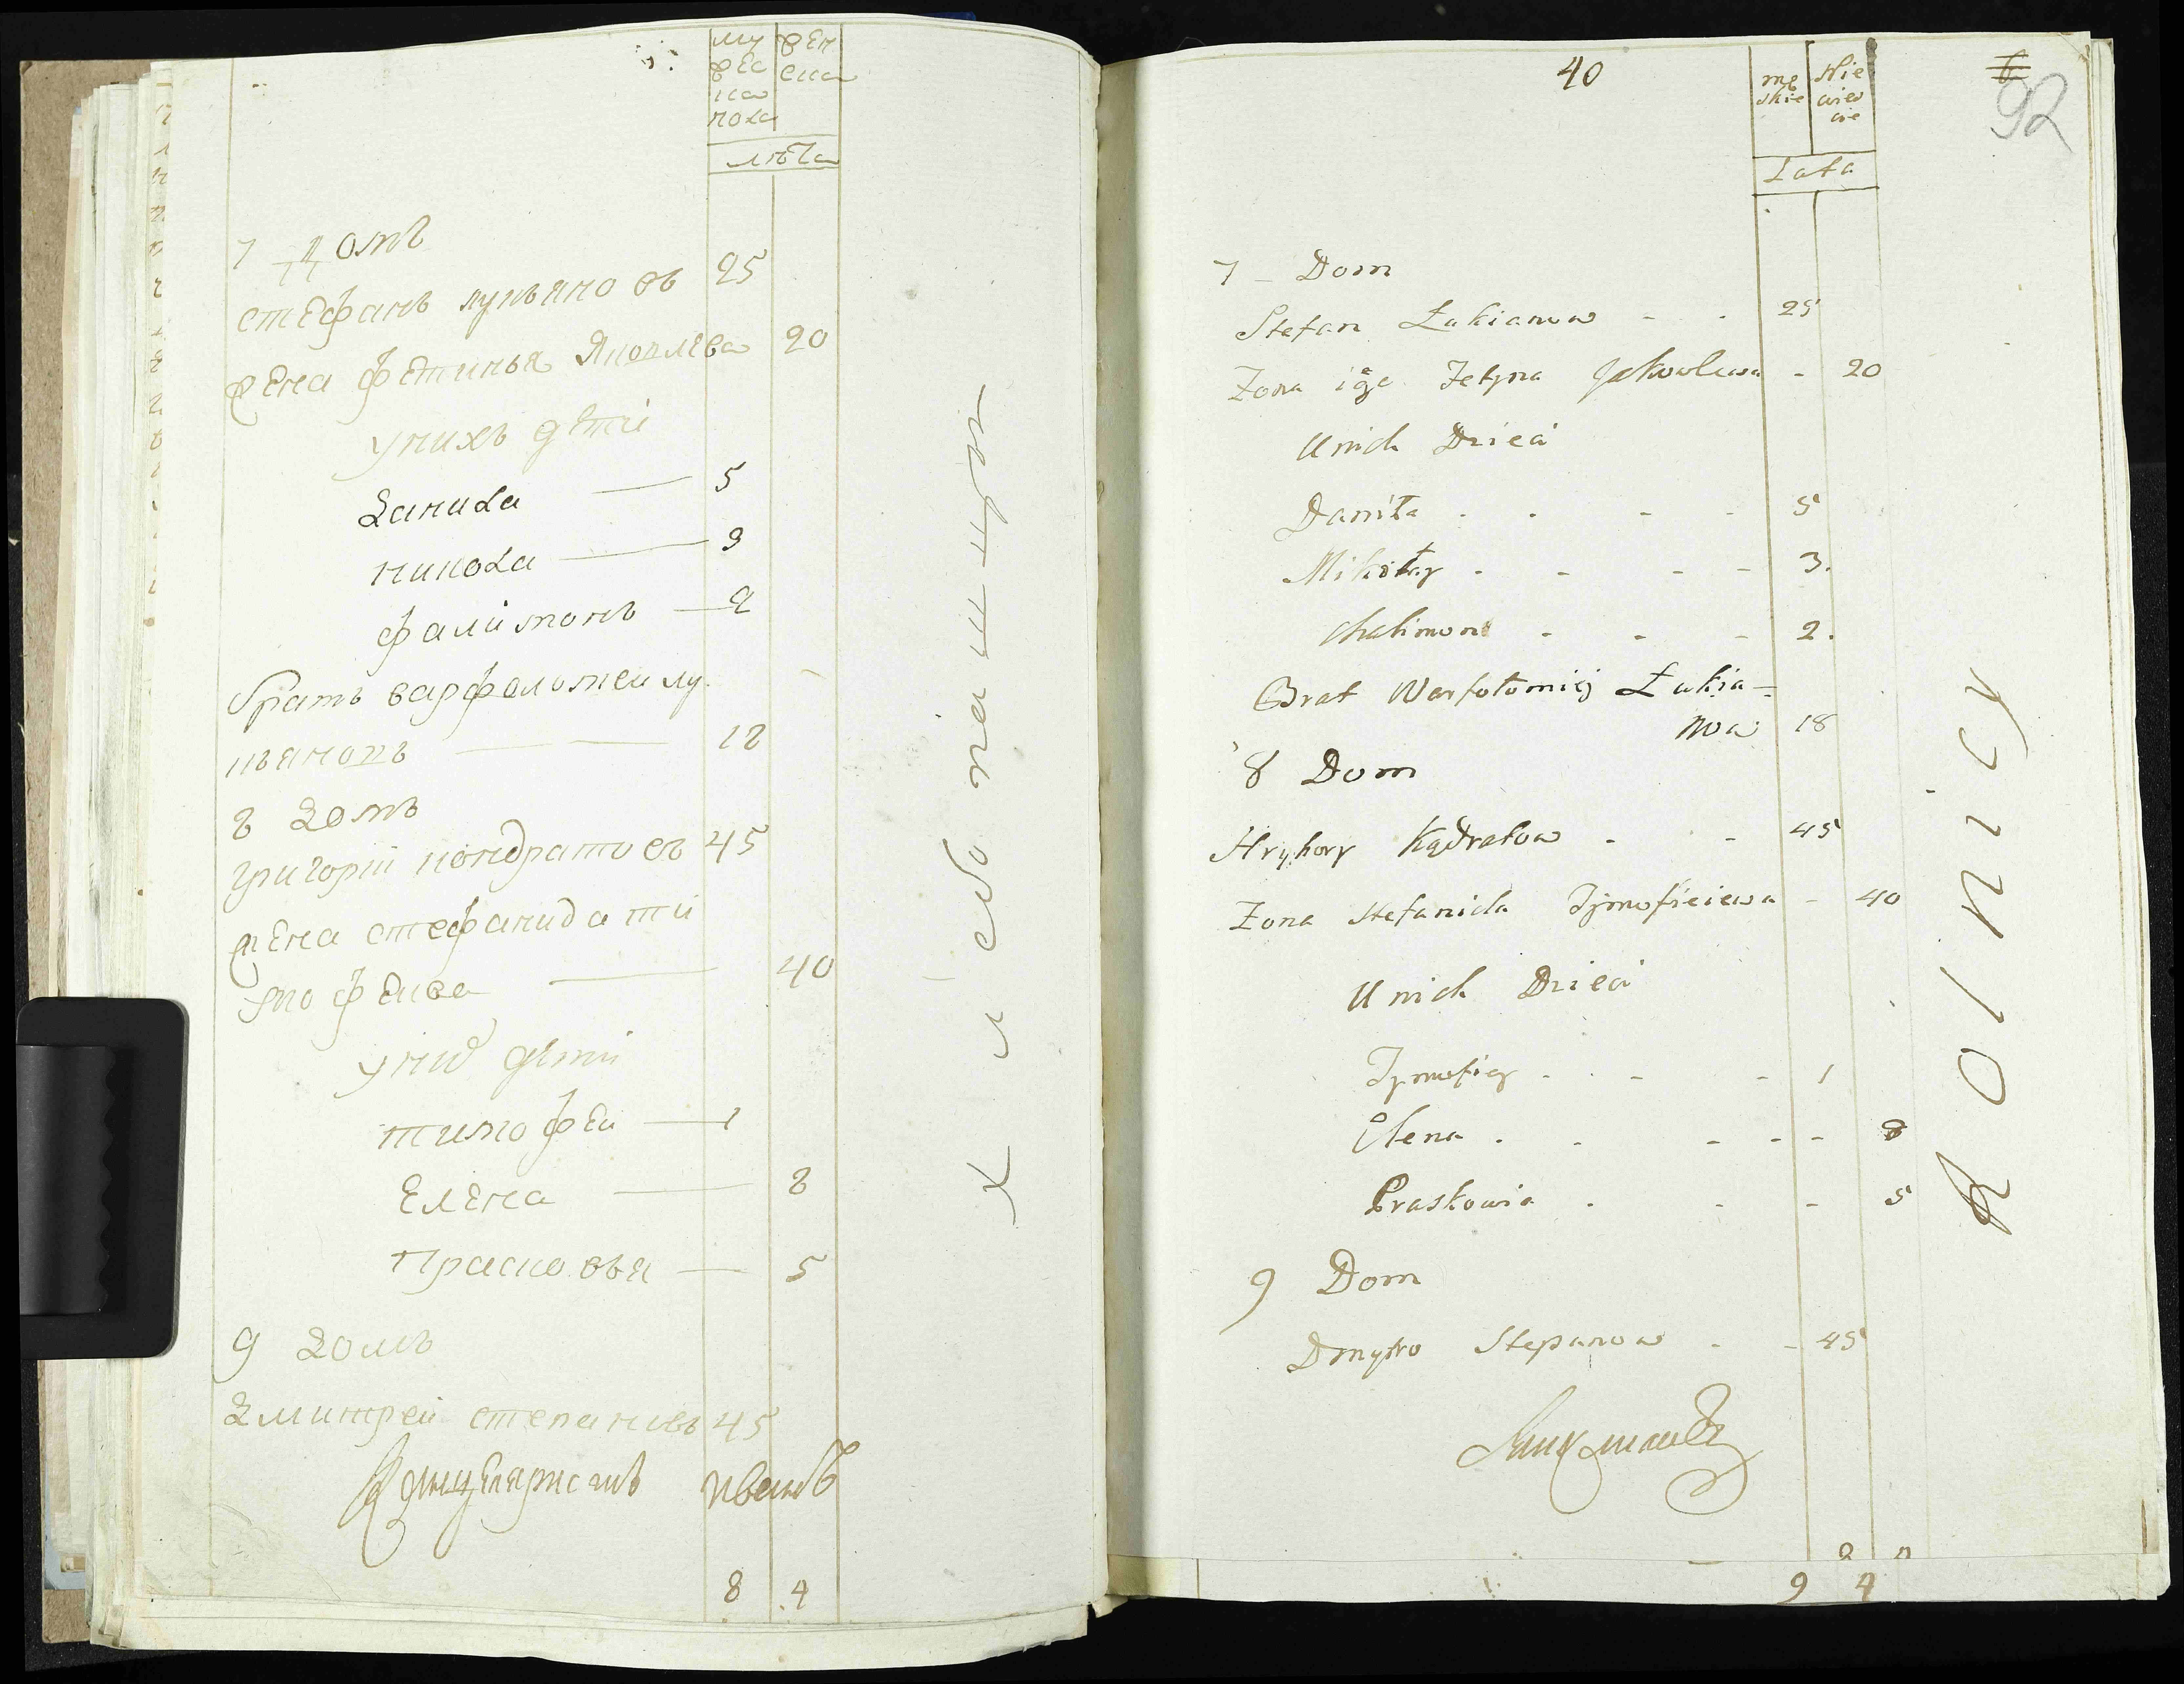 му
жес
ка
пола
жен
ска
лѣта
7 Домъ
стефанъ лукъяновъ 25
жена фетинья Яковлева 20
унихъ дѣти
Данила — 5
никола — 3
фалимонъ — 2
братъ варфоломеи лу-
кьяновъ — 18
8 Домъ
григорiй кондратовъ 45
жена стефанида ти
мофеива — 40
унихъ дѣти
тимофеи — 1
Елена — 8
Прасковья — 5
9 Домъ
Дмитреи степановъ 45
Канцеляристъ Иванъ
8 4
хлѣбопашцы
40
92
mę
skie
Nie
wieś
cie
Lata
7 – Dom
Stefan Łukianow - - 25
Zona iego Fetyna Jakowlewa - 20
U nich Dzieci
Daniła - - - - 5
Mikołay - - - - 3.
Chalimon - - - 2.
Brat Warfołomiéj Łukia-
now 18
8 Dom
Hryhory Kądratow - - 45
Zona Stefanida Tymofieiewa - 40
U nich Dzieci
Tymofiey - - - 1
Olena - - - - - 8
Praskowia - - - 5
9 Dom
Dmytro Stepanow - - 45
9 4
Rolnicy